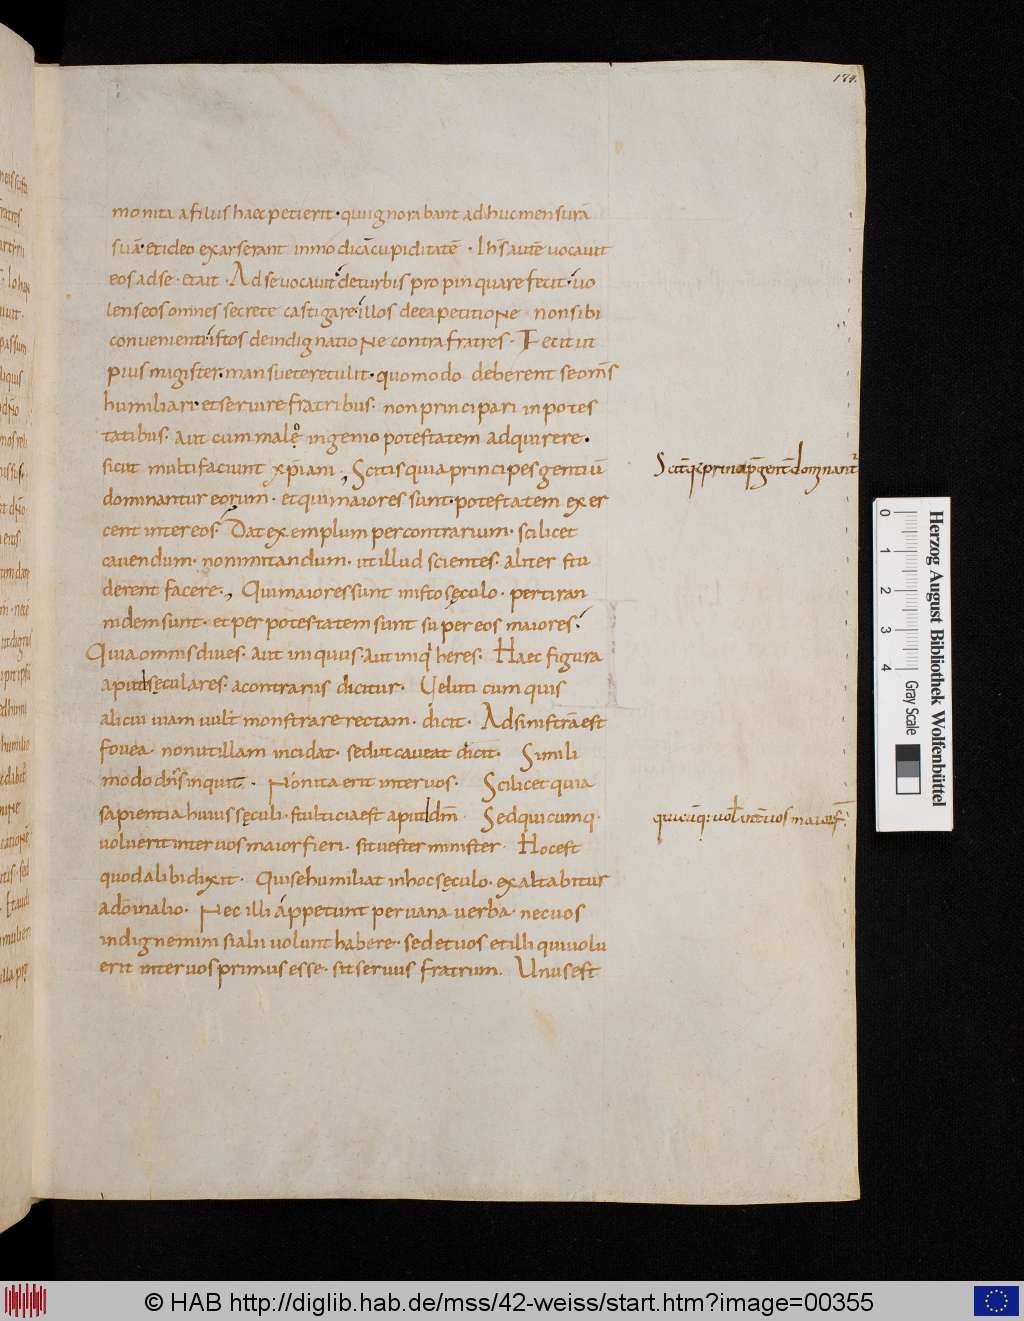 174.
monita a filiis haec petierit · qui ignorabant adhuc mensurā
suā · et ideo exarserant in modicā cupiditatē · Ihs autē vocavit
eos ad se · et ait · Ad se vocavit de turbis propinquare fecit · vo
lens eos omnes secrete castigare · illos de ea petitione non sibi
convenienti · istos de indignatione contra fratres · Fecit ut
pius magister · mansuete retulit · quomodo deberent se om̄s
humiliari et servire fratribus · non principari in potes
tatibus · aut cum male ingenio potestatem adquirere ·
sicut multi faciunt xp̄iani , Scitis quia principes gentiū
dominantur eorum · et qui maiores sunt · potestatem exer
cent inter eos Dat exemplum per contrarium · scilicet
cavendum · non imitandum · ut illud scientes · aliter stu
derent facere · , Qui maiores sunt in isto sęculo · per tiran
nidem sunt · et per potestatem sunt super eos maiores ·
Quia omnis dives · aut iniquus · aut iniqi heres · Haec figura
apud sęculares · a contrariis dicitur · Veluti cum quis
alicui viam vult monstrare rectam · dicit · Ad sinistrā est
fovea · non ut illam incidat · sed ut caveat dicit · Simili
modo dn̄s inquit · Non ita erit inter vos · Scilicet quia
sapientia huius sęculi · stulticia est apud dm̄ · Sed quicumq ·
voluerit inter vos maior fieri · sit vester minister · Hoc est
quod alibi dixit · Qui se humiliat in hoc sęculo · exaltabitur
a dōm alio · Nec illi appetunt per vana verba · nec vos
indignemini si alii volunt habere · sed et vos et illi qui volu
erit inter vos primus esse · sit servus fratrum . Unus est
Scitis q princip gent dominant
quicūq: vol int vos maior f
0 1 2 3 4
Herzog August Bibliothek Wolfenbüttel
Gray Scale
© HAB http://diglib.hab.de/mss/42-weiss/start.htm?image=00355